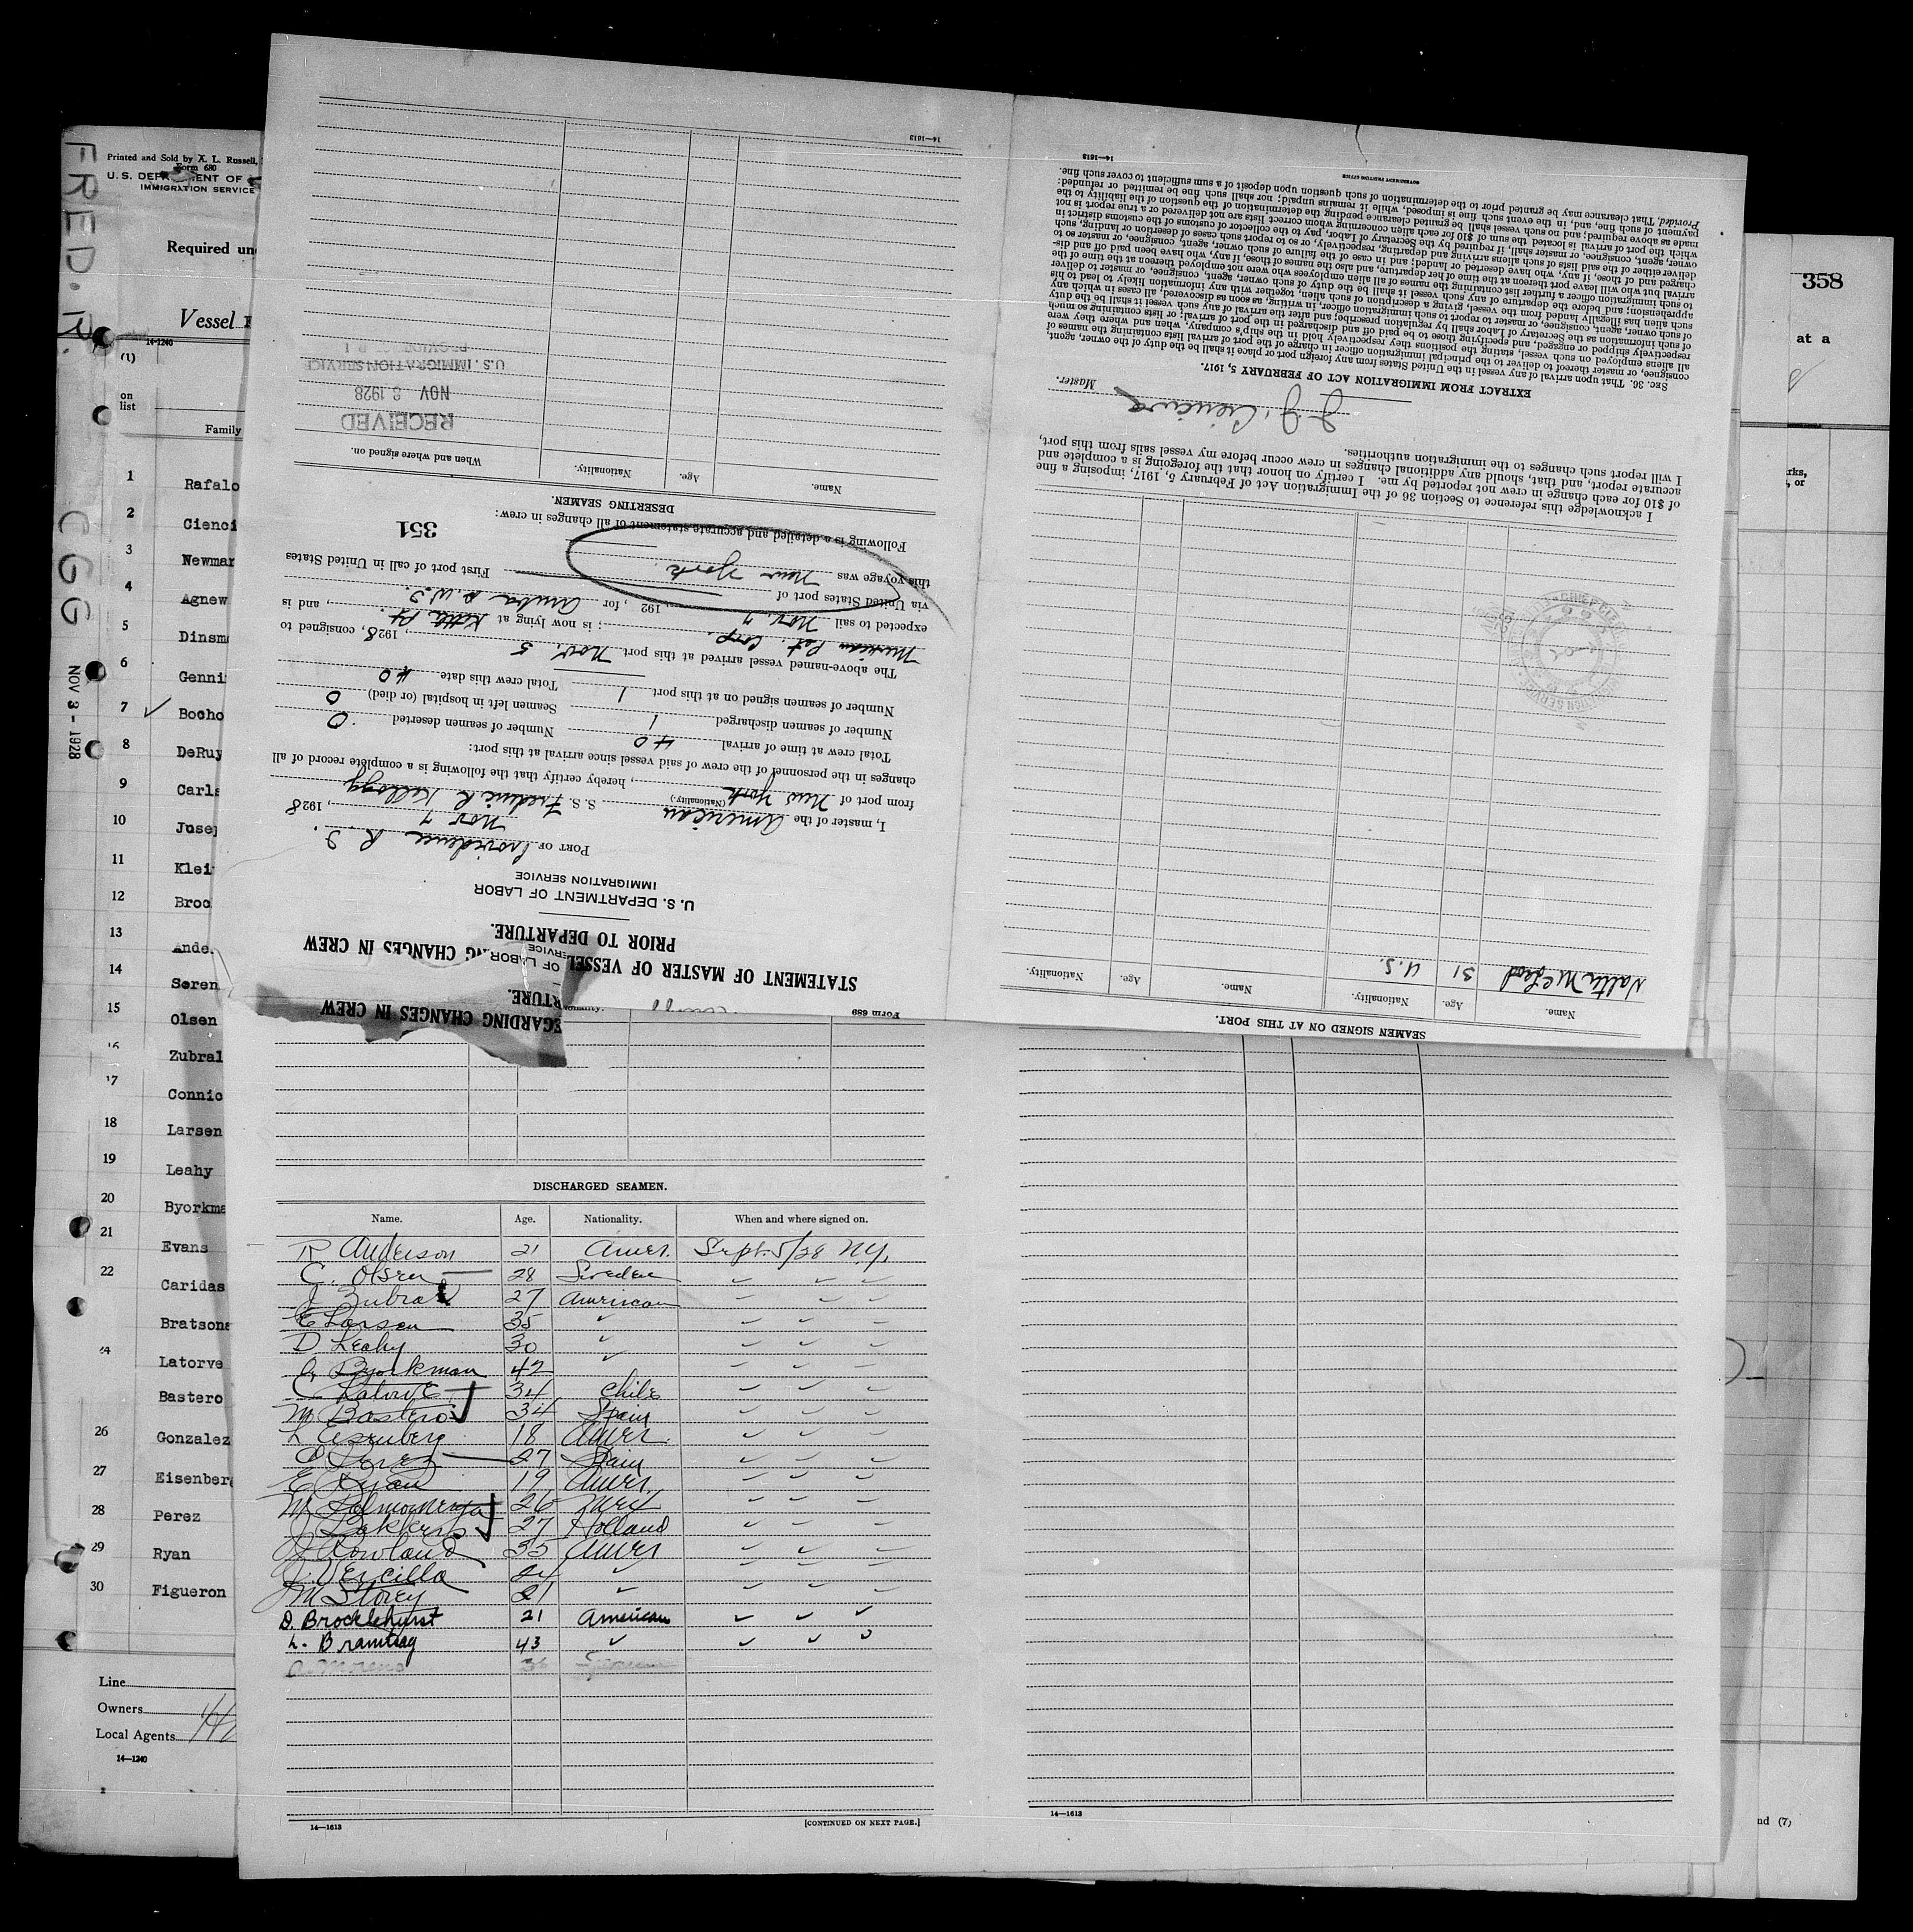 FRED. R.
CGG
NOV 3 - 1928
Printed and Sold by A. L. Russell,
Form 680
U.S. DEPARTMENT OF
IMMIGRATION SERVICE
Required un
Vessel
14-1240
(1)
on
list
Family
1 Rafalo
2 Cienci
3 Newmar
4 Agnew
5 Dinsm
6 Genni
7 Bocho
8 DeRuy
9 Carls
10 Josep
11 Klei
12 Broc
13 Ande
14 Søren
15 Olsen
16 Zubral
17 Connic
18 Larsen
19 Leahy
20 Byorkma
21 Evans
22 Caridas
Bratsona
Latorve
Bastero
26 Gonzalez
27 Eisenberg
28 Perez
29 Ryan
30 Figueron
Line
Owners
Local Agents
14—1240
Form 689
STATEMENT OF MASTER OF VESSEL REGARDING CHANGES IN CREW
PRIOR TO DEPARTURE.
EGARDING CHANGES IN CREW
RTURE.
OF LABOR
SERVICE
U. S. DEPARTMENT OF LABOR
IMMIGRATION SERVICE
PORT OF Providence R I.
Nov 7, 1928
I, master of the American S. S. Frederick Kellogg
(Nationality.)
from port of New York, hereby certify that the following is a complete record of all
changes in the personnel of the crew of said vessel since arrival at this port:
Total crew at time of arrival 40 Number of seamen deserted 0
Number of seamen discharged 1 Seamen left in hospital (or died) 0
Number of seamen signed on at this port 1 Total crew this date 40
The above-named vessel arrived at this port Nov. 5, 1928, consigned to
Mexican Pet. Corp.; is now lying at Kettle Pt., and is
expected to sail Nov. 7, 192 , for Aruba D.W.I.
via United States port of
this voyage was New York. First port of call in United States
Following is a detailed and accurate statement of all changes in crew:
351
DESERTING SEAMEN.
Name. Age. Nationality. When and where signed on.
RECEIVED
NOV 8 1928
U. S. IMMIGRATION SERVICE
PROVIDENCE R. I.
14—1613
SEAMEN SIGNED ON AT THIS PORT.
Name. Age. Nationality. Name. Age. Nationality.
Walter McLeod 31 U.S.
I acknowledge this reference to Section 36 of the Immigration Act of February 5, 1917, imposing a fine
of $10 for each change in crew not reported by me. I certify on honor that the foregoing is a complete and
accurate report, and that, should any additional changes in crew occur before my vessel sails from this port,
I will report such changes to the immigration authorities.
Master.
EXTRACT FROM IMMIGRATION ACT OF FEBRUARY 5, 1917.
SEC. 36. That upon arrival of any vessel in the United States from any foreign port or place it shall be the duty of the owner, agent,
consignee, or master thereof to deliver to the principal immigration officer in charge of the port of arrival lists containing the names of
all aliens employed on such vessel, stating the positions they respectively hold in the ship's company, when and where they were
respectively shipped or engaged, and specifying those to be paid off and discharged in the port of arrival; or lists containing so much
of such information as the Secretary of Labor shall by regulation prescribe; and after the arrival of any such vessel it shall be the duty
of such owner, agent, consignee, or master to report to such immigration officer, in writing, as soon as discovered, all cases in which any
such alien has illegally landed from the vessel, giving a description of such alien, together with any information likely to lead to his
apprehension; and before the departure of any such vessel it shall be the duty of such owner, agent, consignee, or master to deliver
to such immigration officer a further list containing the names of all alien employees who were not employed thereon at the time of the
arrival but who will leave port thereon at the time of her departure, and also the names of those, if any, who have been paid off and dis-
charged and of those, if any, who have deserted or landed; and in case of the failure of such owner, agent, consignee, or master so to
deliver either of the said lists of such aliens arriving and departing, respectively, or so to report such cases of desertion or landing, such
owner, agent, consignee, or master shall, if required by the Secretary of Labor, pay to the collector of customs of the customs district in
which the port of arrival is located the sum of $10 for each alien concerning whom correct lists are not delivered or a true report is not
made as above required; and no such vessel shall be granted clearance pending the determination of the question of the liability to the
payment of such fine, and, in the event such fine is imposed, while it remains unpaid; nor shall such fine be remitted or refunded:
Provided, That clearance may be granted prior to the determination of such question upon deposit of a sum sufficient to cover such fine.
14—1613
GOVERNMENT PRINTING OFFICE
358
at a
rks,
, or
nd (7)
DISCHARGED SEAMEN.
Name. Age. Nationality. When and where signed on.
R Anderson 21 Amer. Sept. 5/28 N.Y.
C. Olsen 28 Sweden
J Zubral 27 American
E Larsen 35
D Leahy 30
G Byorkman 42
C Latorve 34 Chile
M Bastero 34 Spain
L Eisenberg 18 Amer.
C Perez 27 Spain
E Ryan 19 Amer.
M 26 Mex
J Bakkers 27 Holland
J Rowland 35 Amer
J. Vercilla 24
J M Storey 21
D. Brocklehurst 21 American
L. Bramtag 43
A. Moreno 36
14—1613
[CONTINUED ON NEXT PAGE.]
14—1613